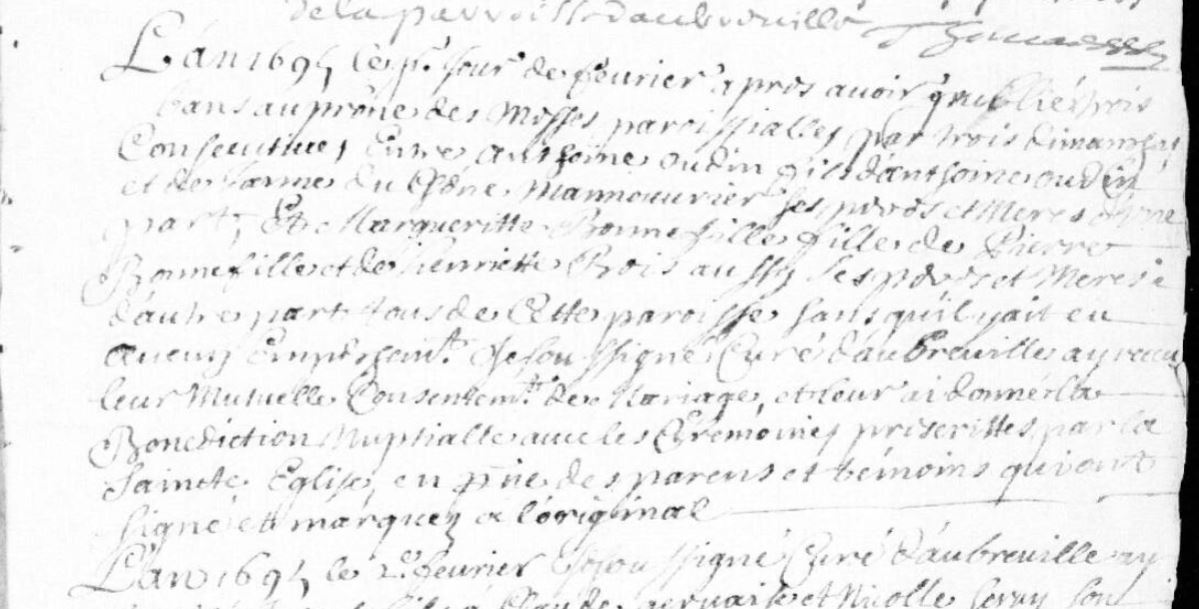 de la parroisse d'aubreville
L'an 1695 le pr. jour de fevrier apres avoir publié trois
bans au prône des Messes paroissialles par trois dimanches
Consecutives Entre Anthoine oudin fils d'anthoine oudin
et de Janne Mannouvrier ses peres et Meres d'une
part, Et Margueritte Bonnefille fille de Pierre
Bonnefille et de henriette aussy ses peres et Meres
d'autre part tous de Cette paroisse sans qu'il y ait eu
aucun Empescham.t Je soussigné Curé d'aubreville ay receu
leur Mutuelle Consentem.t de Mariage, et leur ai donné la
Benediction Nuptialle avec les Ceremoines prescrittes par la
Saincte Eglise, en pnce des parens et témoins qui ont
signé et marquez a l'original
L'an 1695 le 2e. fevrier Je soussigné Curé d'aubreville ay
Claude gervaise et Nicolle son